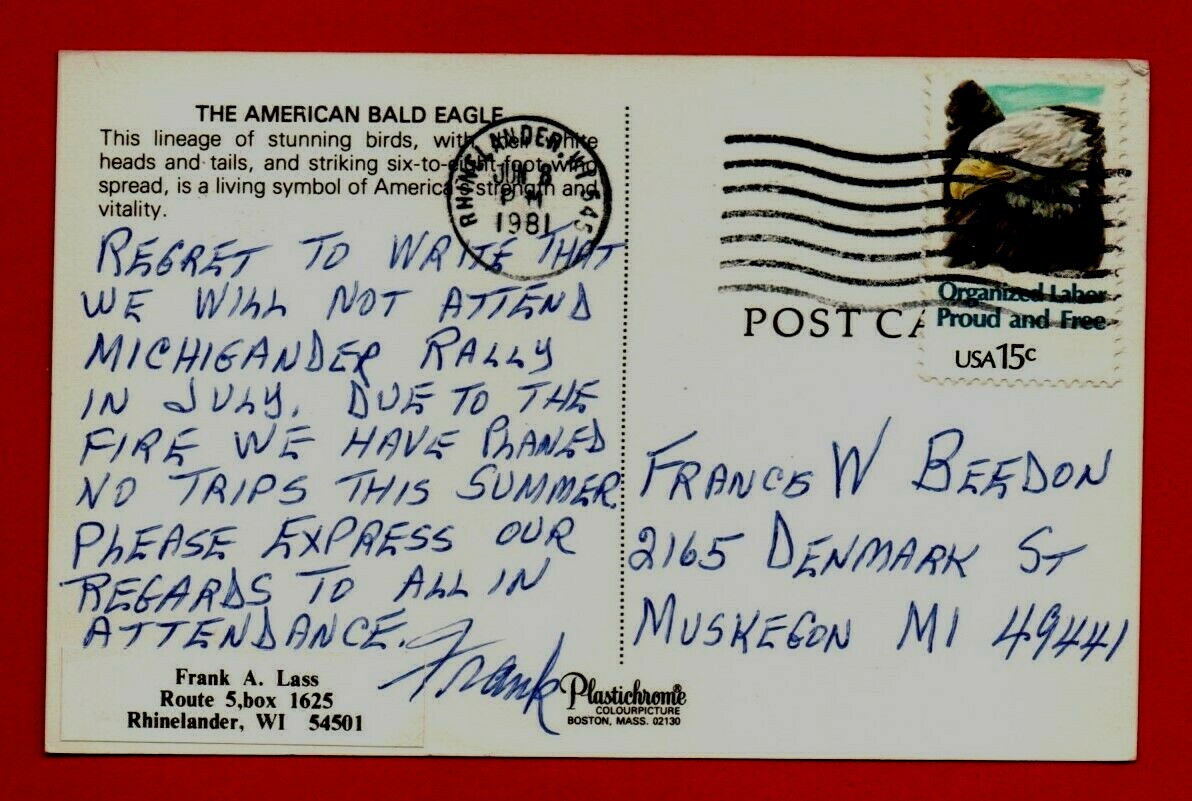 THE AMERICAN BALD EAGLE
This lineage of stunning birds, with their white
heads and tails, and striking six-to-eight-foot wing
spread, is a living symbol of America's strength and
vitality.
RHINELANDER, WI 545
JUN
PM
1981
REGRET TO WRITE THAT
WE WILL NOT ATTEND
MICHIGANDER RALLY
IN JULY. DUE TO THE
FIRE WE HAVE PLANED
NO TRIPS THIS SUMMER.
PLEASE EXPRESS OUR
REGARDS TO ALL IN
ATTENDANCE.
Frank
Frank A. Lass
Route 5,box 1625
Rhinelander, WI 54501
Plastichrome®
COLOURPICTURE
BOSTON, MASS. 02130
Organized Labor
Proud and Free
USA 15c
POST CA
FRANCES W BEEDON
2165 DENMARK ST
MUSKEGON MI 49441